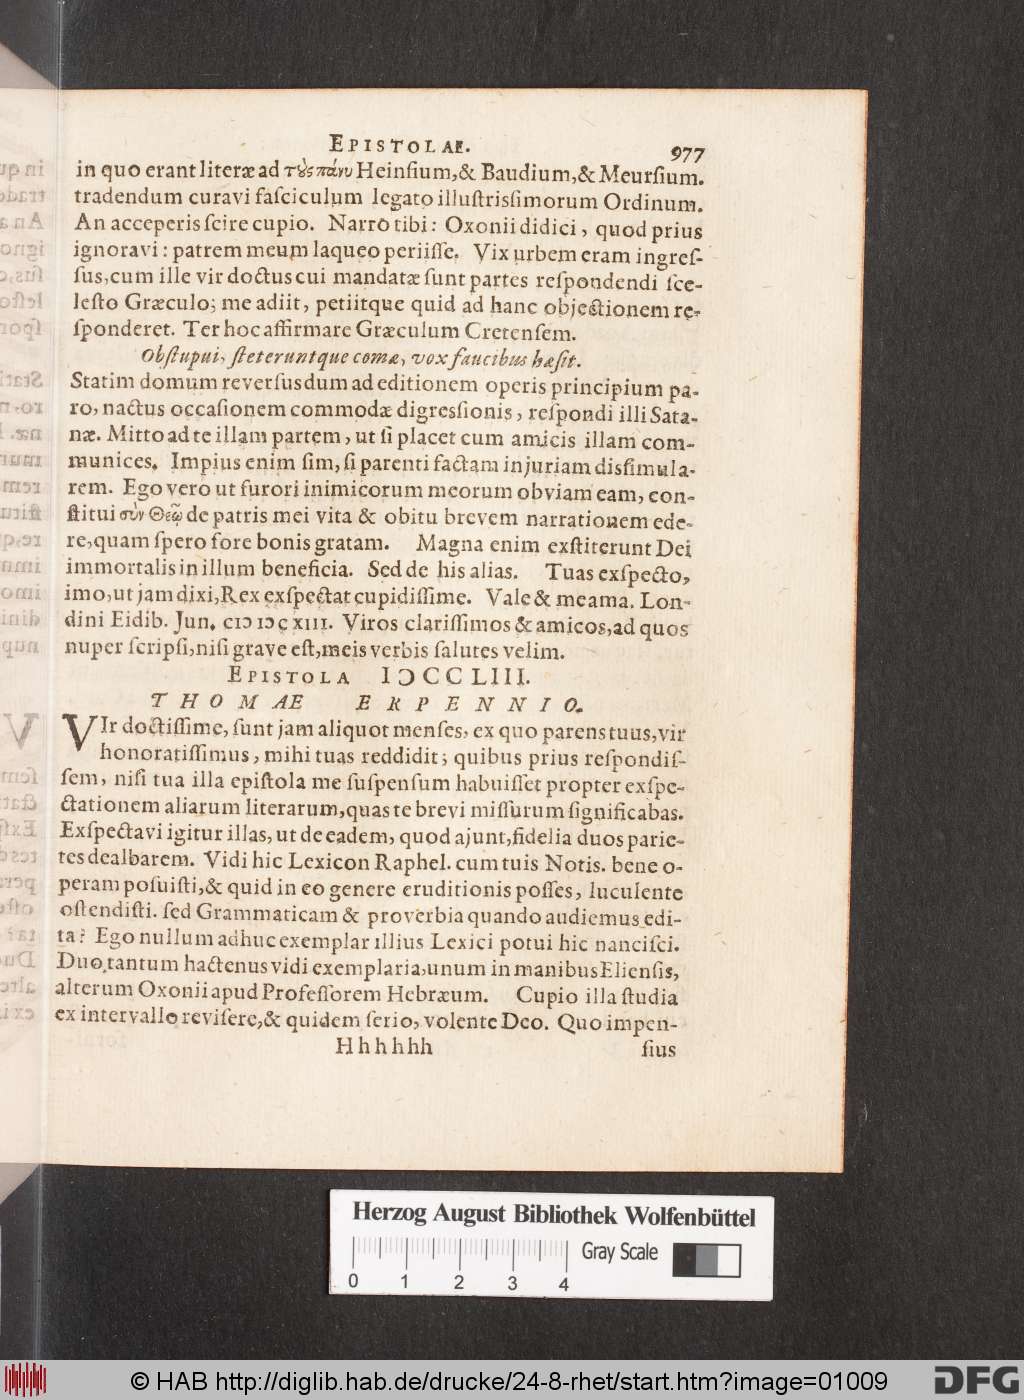 EPISTOLAE. 977
in quo erant literæ ad τȣ̀ς πάνυ Heinſium, & Baudium, & Meurſium.
tradendum curavi faſciculum legato illuſtrissimorum Ordinum.
An acceperis ſcire cupio. Narro tibi: Oxonii didici, quod prius
ignoravi: patrem meum laqueo periiſſe. Vix urbem eram ingreſ-
ſus, cum ille vir doctus cui mandatæ ſunt partes reſpondendi ſce-
leſto Græculo; me adiit, petiitque quid ad hanc objectionem re-
ſponderet. Ter hoc affirmare Græculum Cretenſem.
Obſtupui, ſteteruntque comæ, vox faucibus hæſit.
Statim domum reverſus dum ad editionem operis principium pa-
ro, nactus occaſionem commodæ digresſionis, reſpondi illi Sata-
næ. Mitto ad te illam partem, ut ſi placet cum amicis illam com-
munices. Impius enim ſim, ſi parenti factam injuriam disſimula-
rem. Ego vero ut furori inimicorum meorum obviam eam, con-
ſtitui σὺν Θεῷ de patris mei vita & obitu brevem narrationem ede-
re, quam ſpero fore bonis gratam. Magna enim exſtiterunt Dei
immortalis in illum beneficia. Sed de his alias. Tuas exſpecto,
imo, ut jam dixi, Rex exſpectat cupidiſſime. Vale & me ama. Lon-
dini Eidib. Jun. cIɔ Iɔc XIII. Viros clariſſimos & amicos, ad quos
nuper ſcripſi, niſi grave eſt, meis verbis ſalutes velim.
EPISTOLA IƆCCLIII.
THOMAE ERPENNIO.
VIr doctiſſime, ſunt jam aliquot menſes, ex quo parens tuus, vir
honoratiſſimus, mihi tuas reddidit; quibus prius reſpondiſ-
ſem, niſi tua illa epiſtola me ſuſpenſum habuiſſet propter exſpe-
ctationem aliarum literarum, quas te brevi miſſurum ſignificabas.
Exſpectavi igitur illas, ut de eadem, quod ajunt, fidelia duos parie-
tes dealbarem. Vidi hic Lexicon Raphel. cum tuis Notis. bene o-
peram poſuiſti, & quid in eo genere eruditionis poſſes, luculente
oſtendiſti. ſed Grammaticam & proverbia quando audiemus edi-
ta? Ego nullum adhuc exemplar illius Lexici potui hic nanciſci.
Duo tantum hactenus vidi exemplaria, unum in manibus Elienſis,
alterum Oxonii apud Profeſſorem Hebræum. Cupio illa ſtudia
ex intervallo reviſere, & quidem ſerio, volente Deo. Quo impen-
Hhhhhhh ſius
Herzog August Bibliothek Wolfenbüttel
Gray Scale
0 1 2 3 4
© HAB http://diglib.hab.de/drucke/24-8-rhet/start.htm?image=01009
DFG